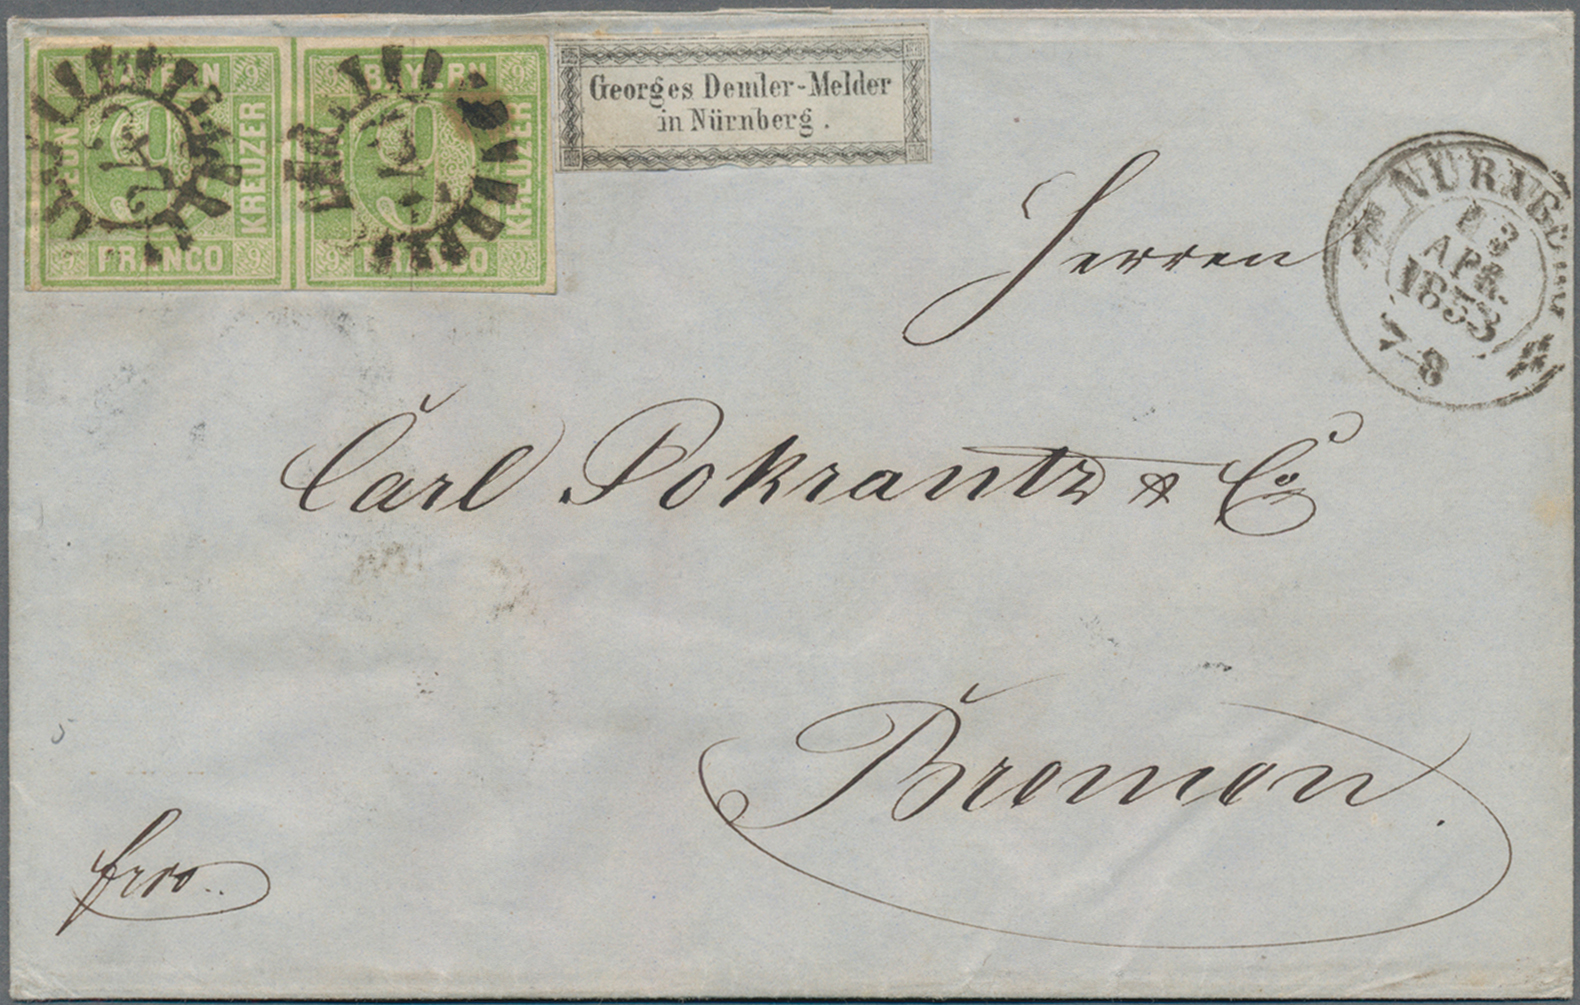 BAYERN
9 KREUZER
FRANCO
BAYERN
9 KREUZER
FRANCO
Georges Demler-Melder
in Nürnberg.
NÜRNBERG
13
APR.
1853
7-8
Herren
Carl Pokrantz & Co
Bremen.
frco..